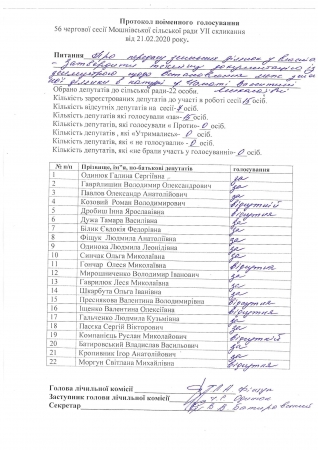 Протокол поіменного голосування
56 чергової сесії Мошнівської сільської ради VII скликання
від 21.02.2020 року.
Питання Про передачу земельних ділянок у власн
- затвердження технічної документації із
Обрано депутатів до сільської ради-22 особи.
Кількість зареєстрованих депутатів до участі к роботі сесії 15 осіб.
Кількість відсутніх депутатів на сесії- осіб.
Кількість депутатів які голосували «за»-15 осіб.
Кількість депутатів, які голосували « Проти»-0 осіб.
Кількість депутатів, які , «Утримались» 0 осіб.
Кількість депутатів, які « не голосували» -0 осіб
Кількість депутатів, які «не брали участь у голосуванні»-0 осіб.
№ п/п Прізвище, ім"я, по-батькові депутатів голосування
1 Одинюк Галина Сергіївна за
2 Гаврилишин Володимир Олександрович за
3 Павлов Олександр Анатолійович за
4 Козовий Роман Володимирович відсутній
5 Дробиш Інна Ярославівна відсутня
6 Дужа Тамара Василівна за
7 Білик Євдокія Федорівна за
8 Фіщук Людмила Анатоліївна за
9 Одинока Людмила Леонідівна за
10 Синчак Ольга Миколаївна за
11 Гончар Олеся Миколаївна відсутня
12 Мирошниченко Володимир Іванович за
13 Гаврилюк Леся Миколаївна за
14 Шкарбута Ольга Іванівна за
15 Преснякова Валентина Володимирівна відсутня
16 Іщенко Валентина Олексіївна відсутня
17 Гальченко Людмила Кузьмівна за
18 Пасєка Сергій Вікторович за
19 Компанієць Руслан Миколайович відсутній
20 Батировський Владислав Васильович за
21 Кропивник Ігор Анатолійович за
22 Моргун Світлана Михайлівна відсутня
Голова лічильної комісії Л А Фіщук
Заступник голови лічильної комісії
Секретар В В Батировський